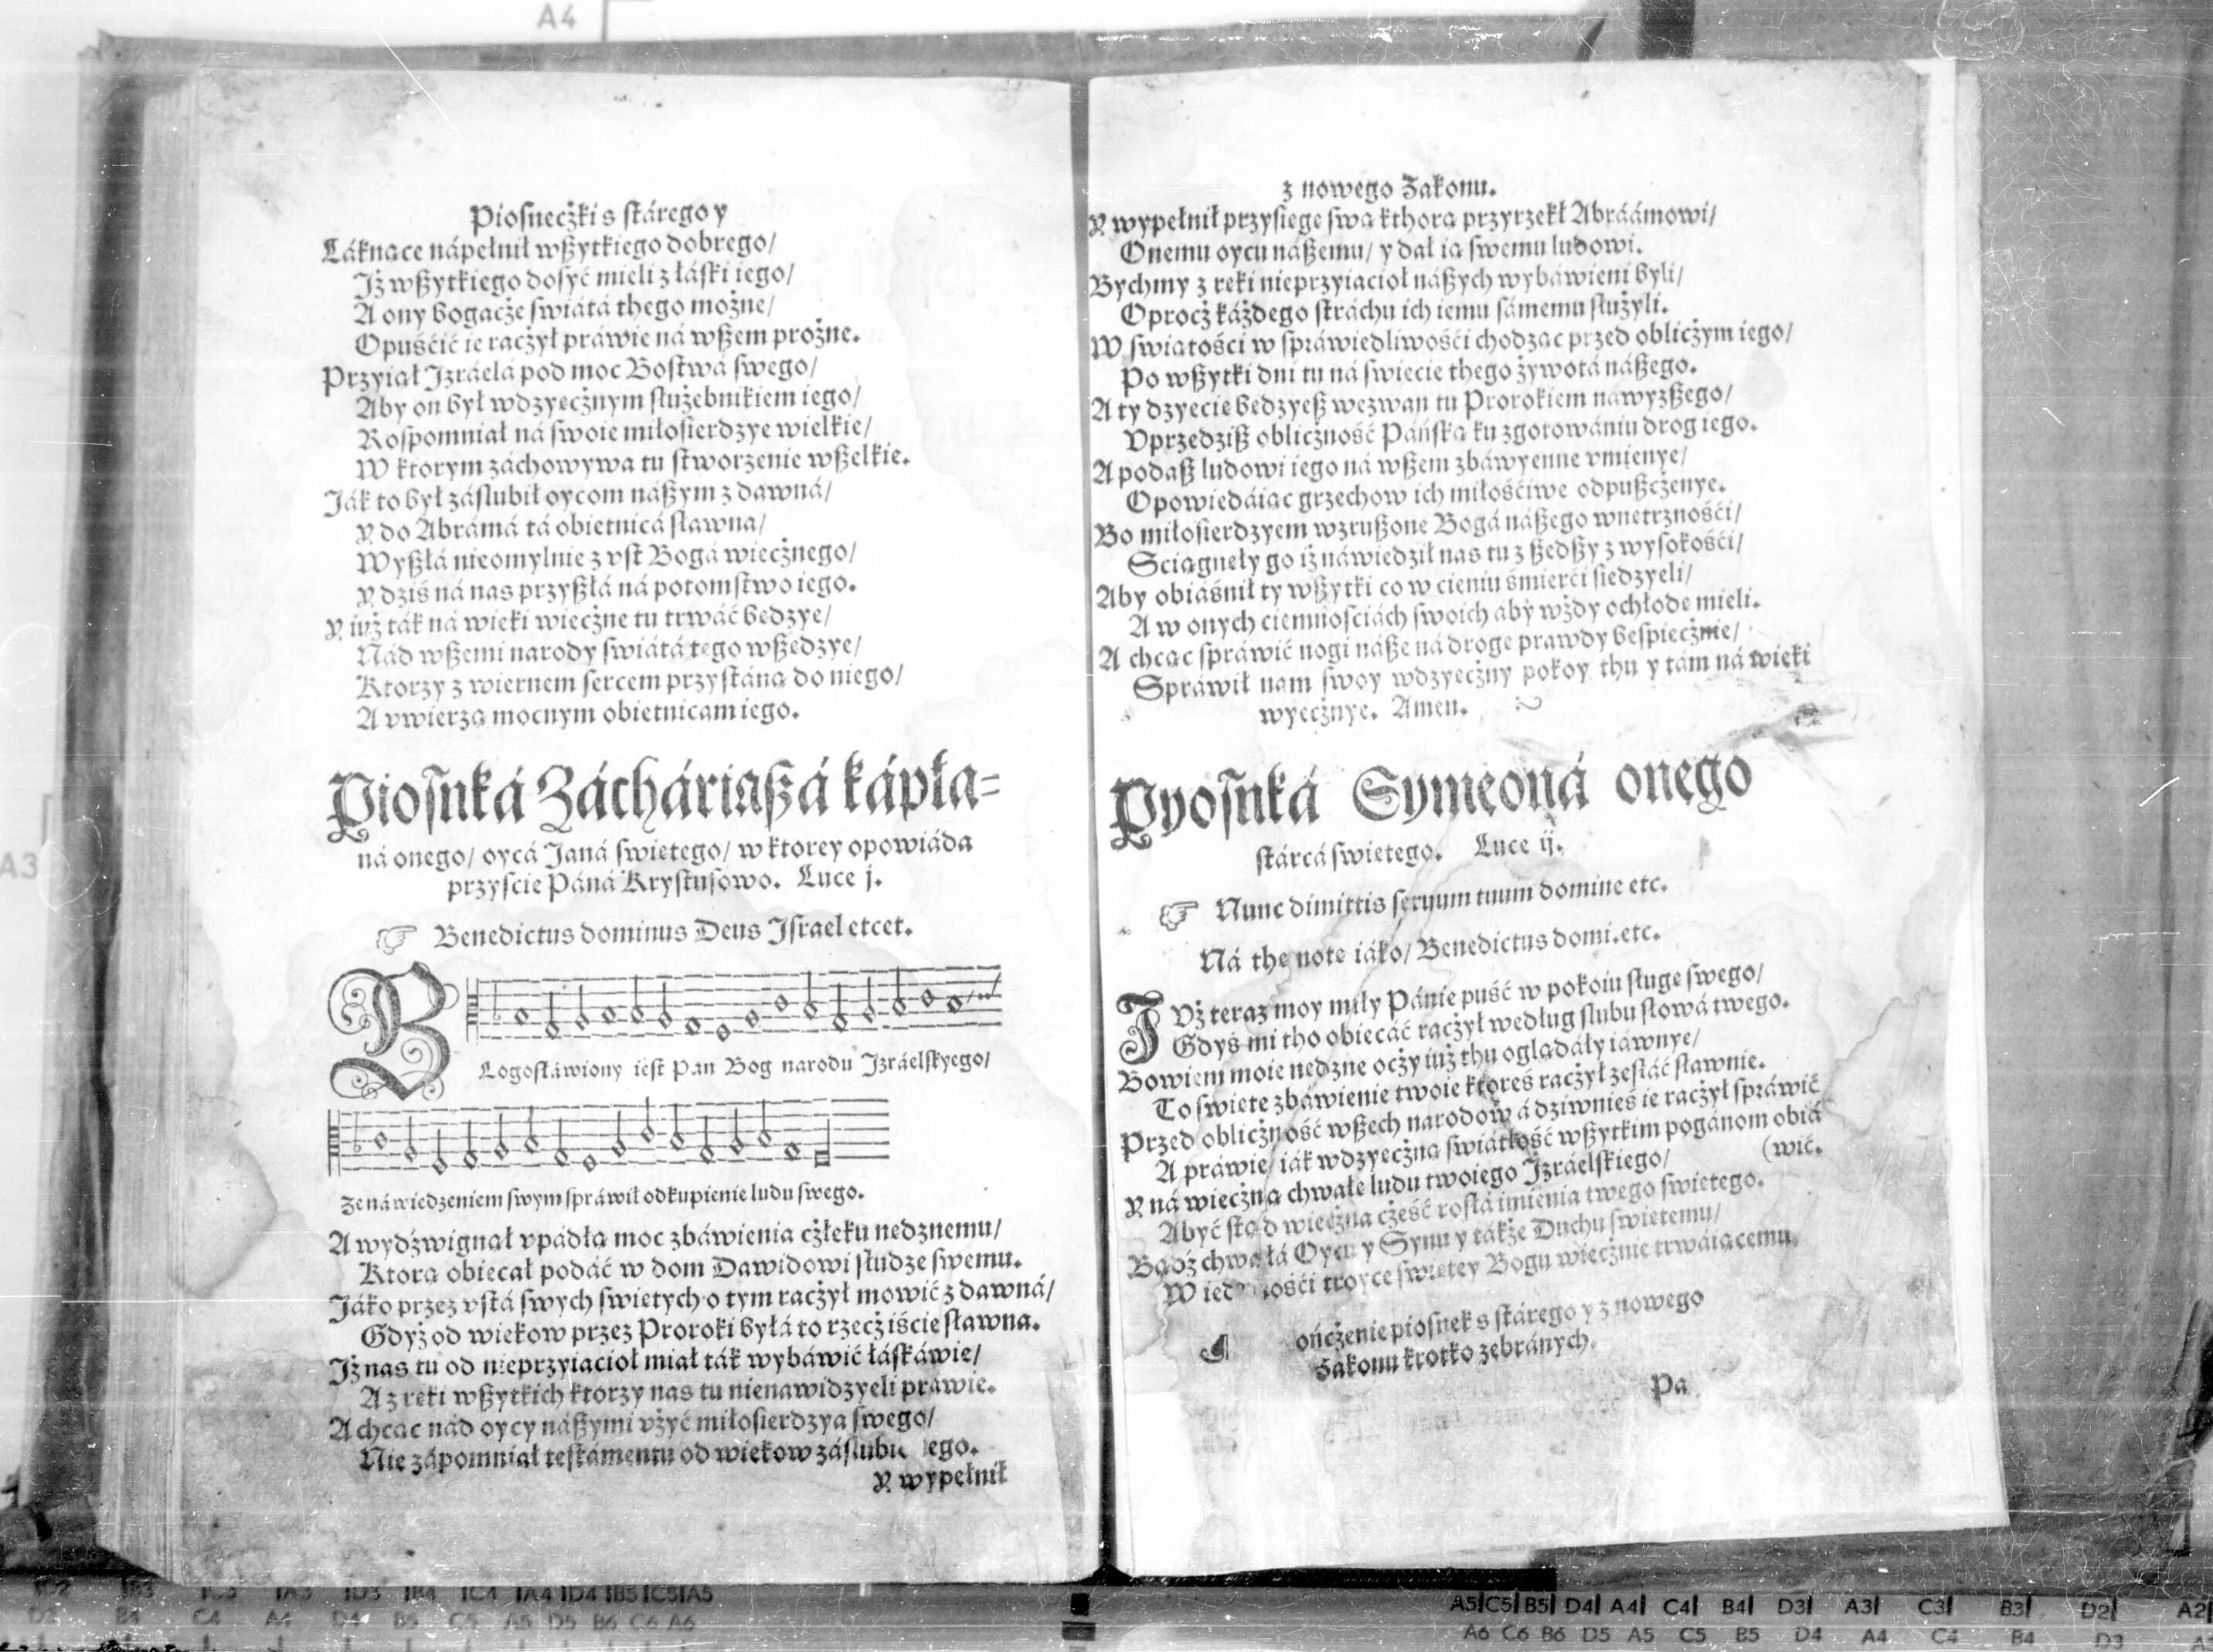 Piosnecżki s stárego y
Láknące nápełnił wßytkiego dobrego/
Iż wßytkiego dosyć mieli z łáski iego/
A ony bogacże swiátá thego możne/
Opuśćić ie racżył práwie ná wßem prożne.
Przyiał Izráelá pod moc Bostwá swego/
Aby on był wdzyecżnym służebnikiem iego/
Rospomniał ná swoie miłosierdzye wielkie/
W ktorym záchowywa tu stworzenie wßelkie.
Iák to był záslubił oycom náßym z dawná/
Y do Abrámá tá obietnicá sławna/
Wyßłá nieomylnie z vst Bogá wiecżnego/
Y dziś ná nas przyßłá ná potomstwo iego.
Y iuż ták ná wieki wiecżne tu trwáć bedzye/
Nád wßemi narody swiátá tego wßedzye/
Ktorzy z wiernem sercem przystáną do niego/
A vwierzą mocnym obietnicam iego.
Piosnká Zácháriaßá kápła-
ná onego/ oycá Janá swietego/ w ktorey opowiáda
przyscie Páná Krystusowo. Luce j.
☞ Benedictus dominus Deus Israel etcet.
B
Logosłáwiony iest Pan Bog narodu Izráelskyego/
Ze náwiedzeniem swym spráwił odkupienie ludu swego.
A wydźwignął vpádłą moc zbáwienia cżłeku nedznemu/
Ktorą obiecał podáć w dom Dawidowi słudze swemu.
Iáko przez vstá swych swietych o tym racżył mowić z dawná/
Gdyż od wiekow przez Proroki byłá to rzecż iście sławna.
Iż nas tu od nieprzyiacioł miał ták wybáwić łáskáwie/
A z reki wßytkich ktorzy nas tu nienawidzyeli prawie.
A chcąc nád oycy náßymi vżyć miłosierdzya swego/
Nie zápomniał testámentu od wiekow záslubu
Y wypełnił
z nowego Zakonu.
Y wypełnił przysiege swą kthorą przyrzekł Abráámowi/
Onemu oycu náßemu/ y dał ią swemu ludowi.
Bychmy z reki nieprzyiacioł náßych wybáwieni byli/
Oprocż káżdego stráchu ich iemu sámemu służyli.
W swiątości w spráwiedliwośći chodząc przed oblicżym iego/
Po wßytki dni tu ná swiecie thego żywotá náßego.
A ty dzyecie bedzyeß wezwan tu Prorokiem nawyzßego/
Vprzedziß oblicżność Páńską ku zgotowániu drog iego.
A podaß ludowi iego ná wßem zbáwyenne vmienye/
Opowiedáiąc grzechow ich miłośćiwe odpußcżenye.
Bo miłosierdzyem wzrußone Bogá náßego wnetrznośći/
Sciągneły go iż náwiedził nas tu z ßedßy z wysokośći/
Aby obiáśnił ty wßytki co w cieniu śmierći siedzyeli/
A w onych ciemnosciách swoich aby wżdy ochłode mieli.
A chcąc spráwić nogi náße ná droge prawdy bespiecżnie/
Spráwił nam swoy wdzyecżny pokoy thu y tám ná wieki
wyecżnye. Amen.
Pyosnká Symeoná onego
stárcá swietego. Luce ij.
☞ Nunc dimittis seruum tuum domine etc.
Ná the note iáko/ Benedictus domi.etc.
IVż teraz moy miły Pánie puść w pokoiu sługe swego/
Gdyś mi tho obiecáć racżył według slubu słowá twego.
Bowiem moie nedzne ocży iuż thu oglądáły iáwnye/
To swiete zbáwienie twoie ktoreś racżył zesłáć sławnie.
Przed oblicżność wßech narodow á dziwnieś ie racżył spráwić
A práwie iák wdzyecżna swiátłość wßytkim pogánom obiá
(wić.
Y ná wiecżną chwałe ludu twoiego Izráelskiego/
Abyć stąd wiecżna cżeść rosłá imienia twego swietego.
Bądź chwałá Oycu y Synu y tákże Duchu swietemu/
W troyce swietey Bogu wiecżnie trwáiącemu.
ońcżenie piosnek s stárego y z nowego
Zakonu krotko zebránych.
Pa